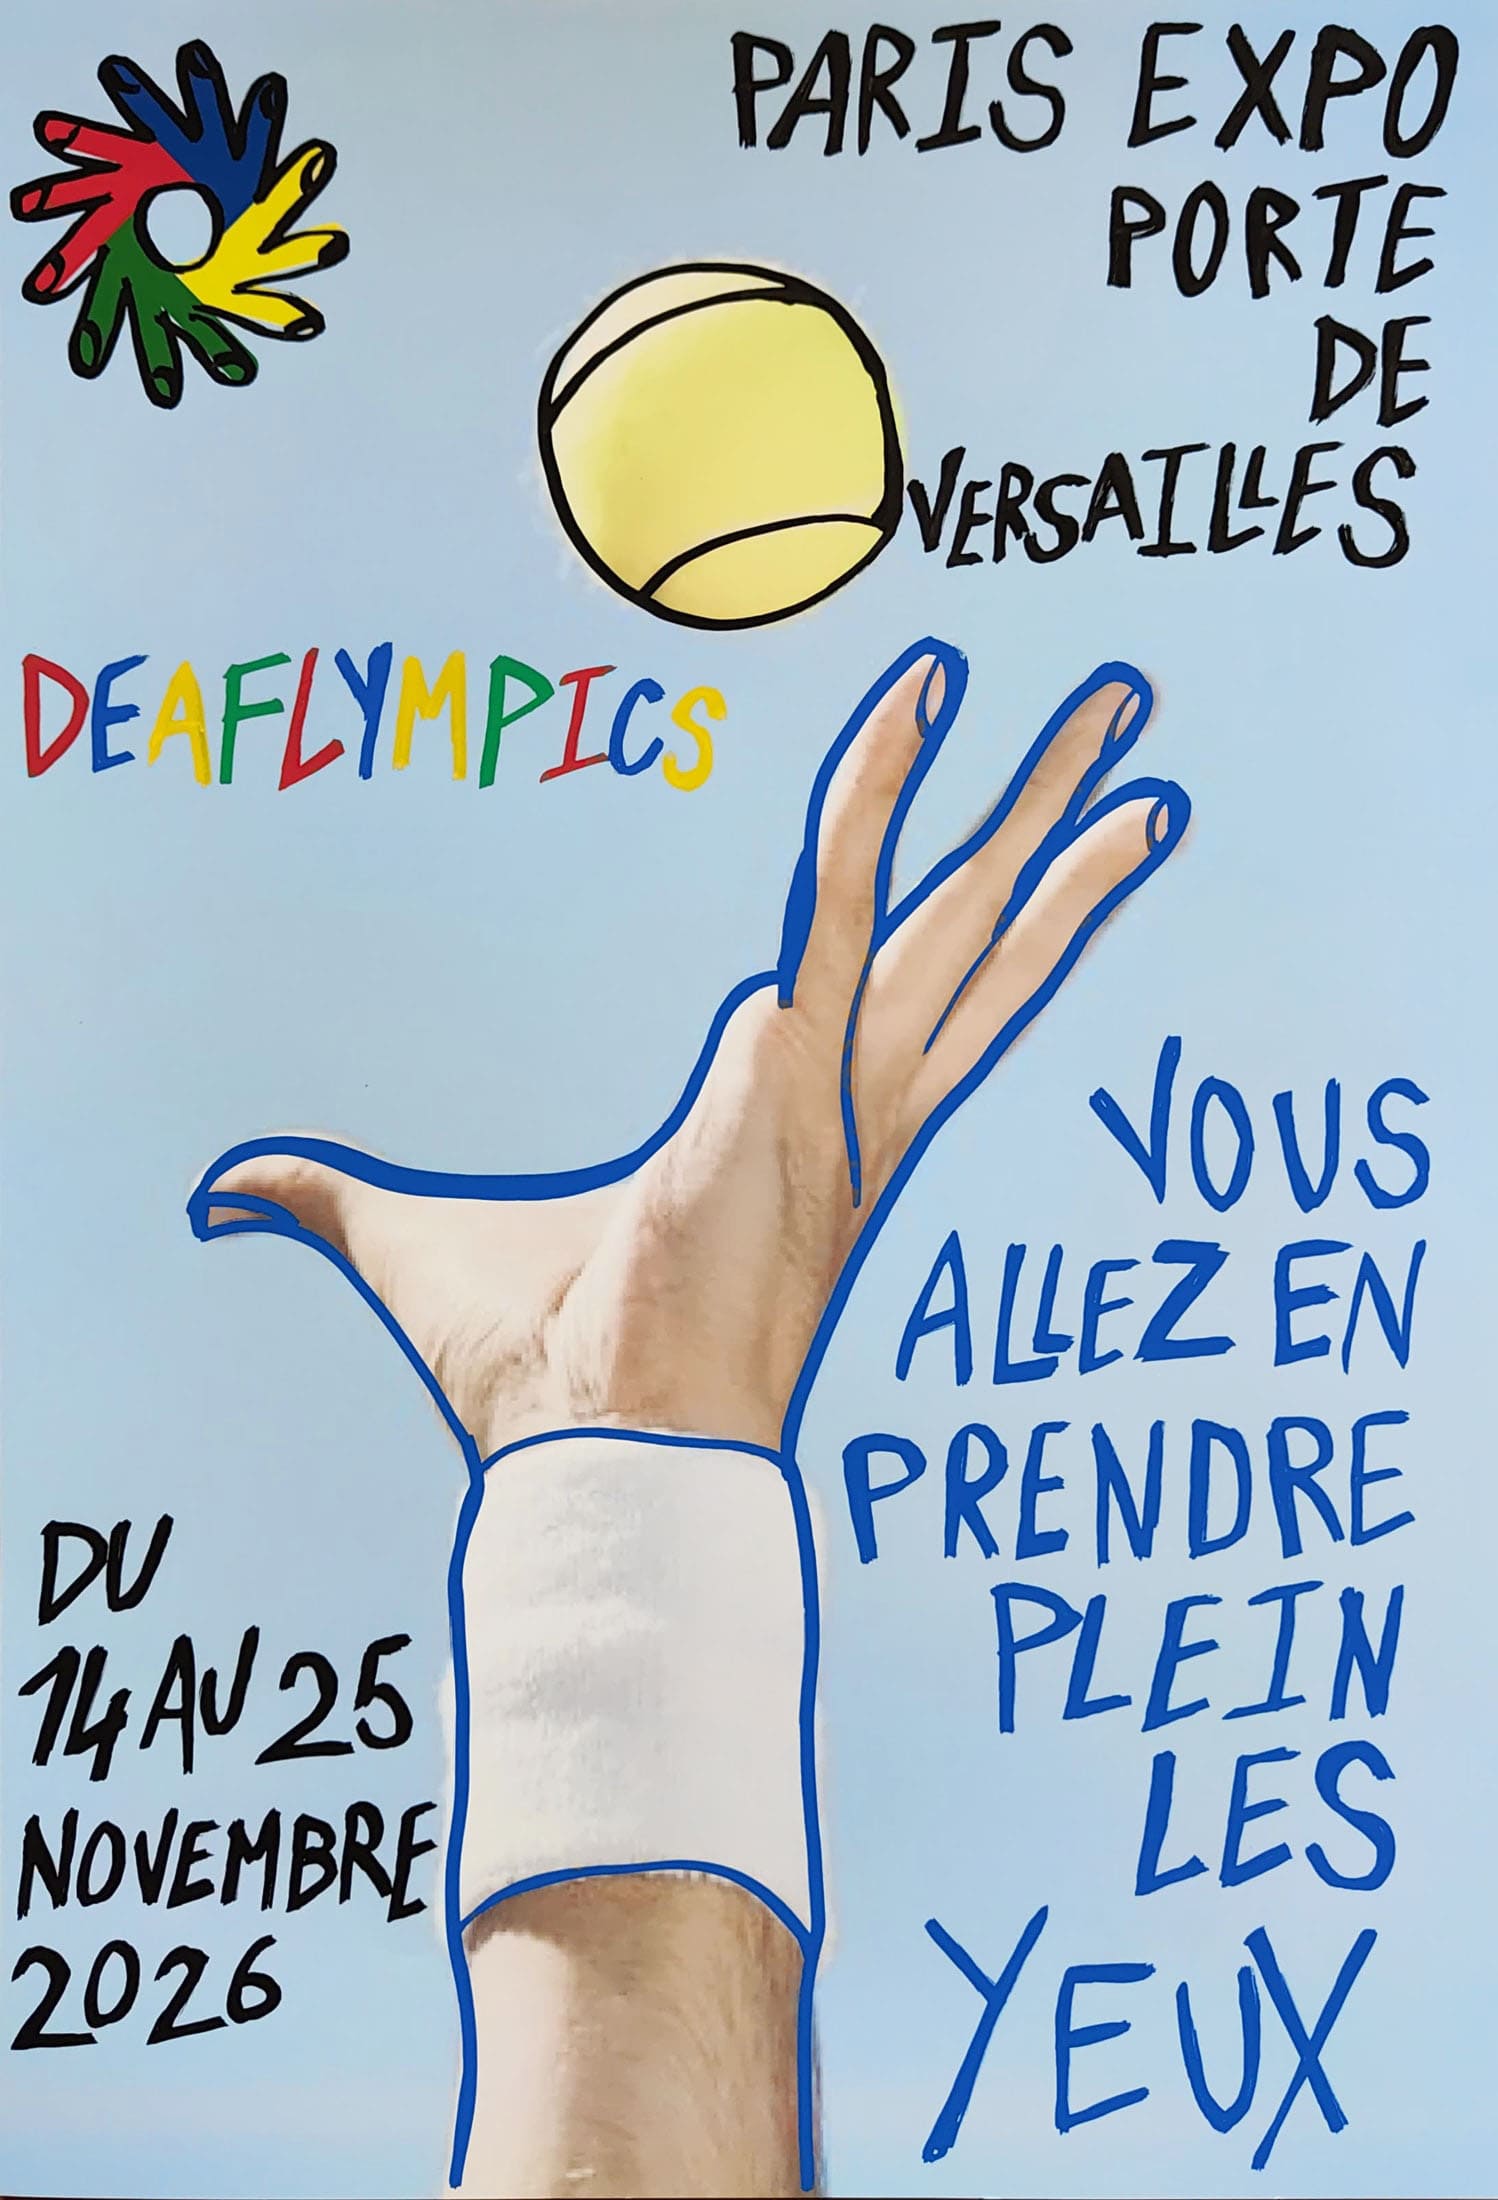 PARIS EXPO
PORTE
DE
VERSAILLES
DEAFLYMPICS
VOUS
ALLEZ EN
PRENDRE
PLEIN
LES
YEUX
DU
14 AU 25
NOVEMBRE
2026